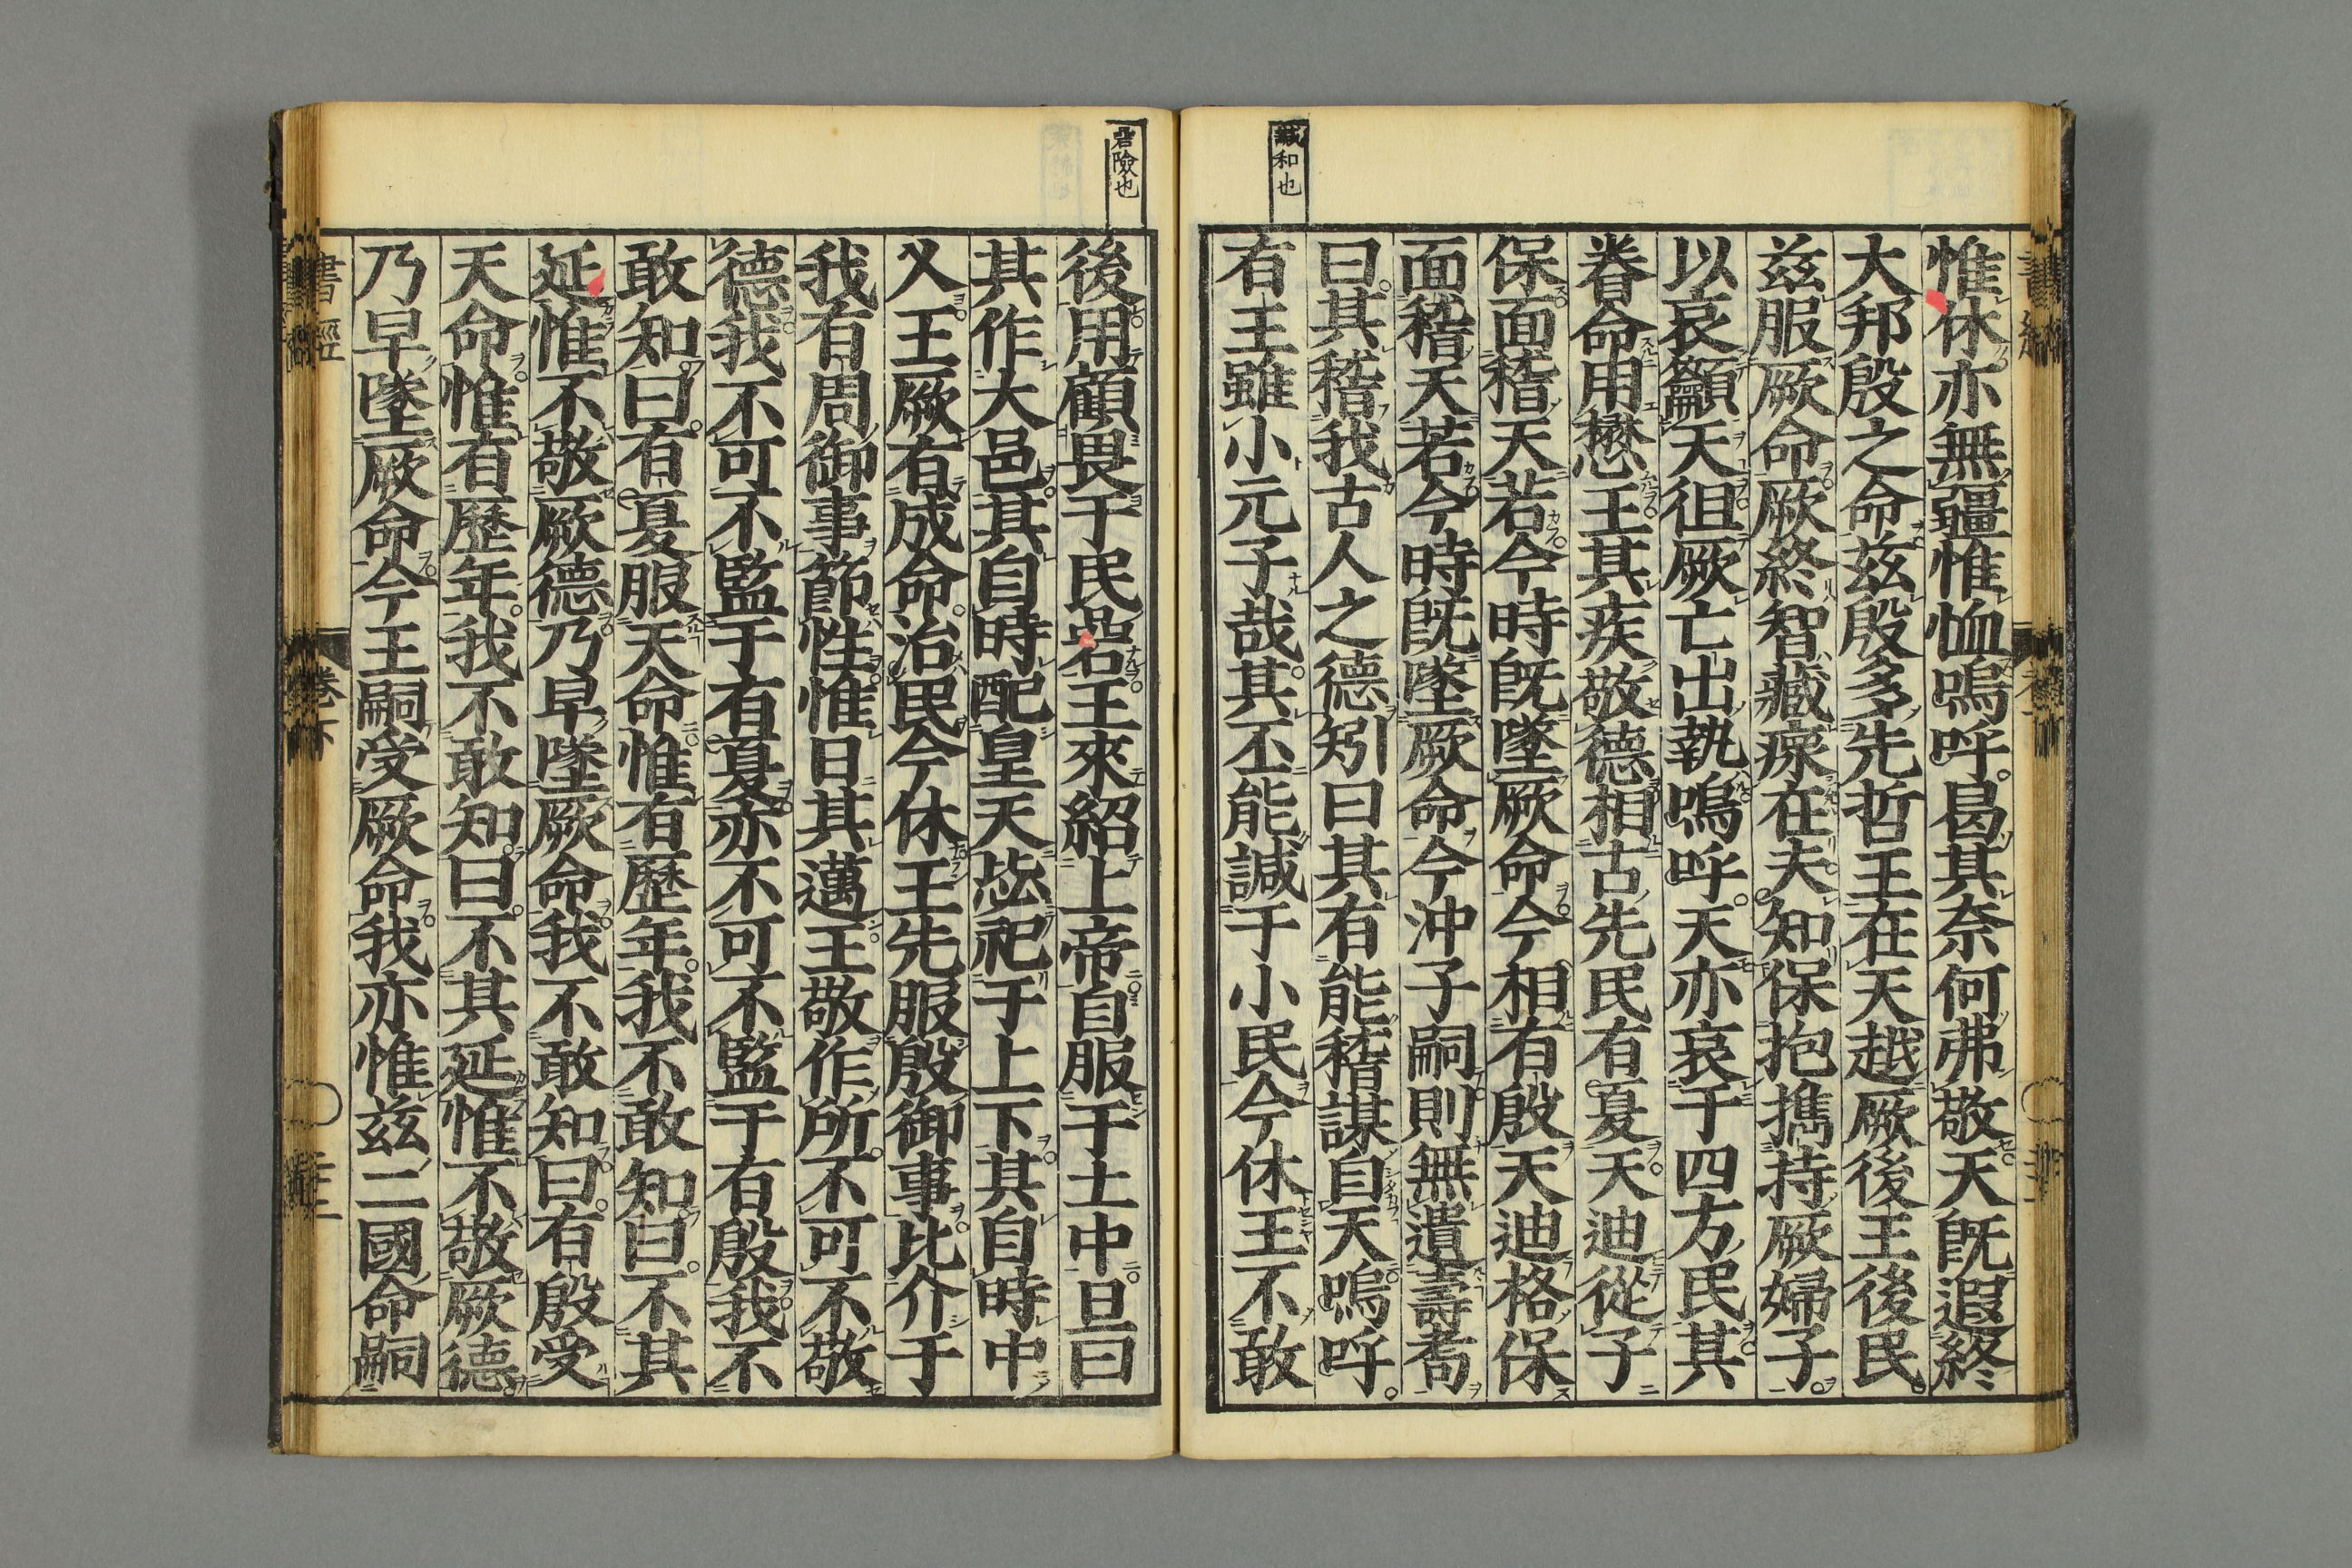 諴和也
惟休亦無疆惟恤嗚呼曷其奈何弗敬天既遐終
大邦殷之命兹殷多先哲王在天越厥後王後民
兹服厥命厥終智藏瘝在夫知保抱攜持厥婦子
以哀籲天徂厥亡出執嗚呼天亦哀于四方民其
眷命用懋王其疾敬德相古先民有夏天迪從子
保面稽天若今時既墜厥命今相有殷天迪格保
面稽天若今時既墜厥命今沖子嗣則無遺壽耇
曰其稽我古人之德矧曰其有能稽謀自天嗚呼
有王雖小元子哉其丕能諴于小民今休王不敢
碞險也
後用顧畏于民碞王來紹上帝自服于土中旦曰
其作大邑其自時配皇天毖祀于上下其自時中
乂王厥有成命治民今休王先服殷御事比介于
我有周御事節性惟日其邁王敬作所不可不敬
德我不可不監于有夏亦不可不監于有殷我不
敢知曰有夏服天命惟有歷年我不敢知曰不其
延惟不敬厥德乃早墜厥命我不敢知曰有殷受
天命惟有歷年我不敢知曰不其延惟不敬厥德
乃早墜厥命今王嗣受厥命我亦惟兹二國命嗣
書經
卷下